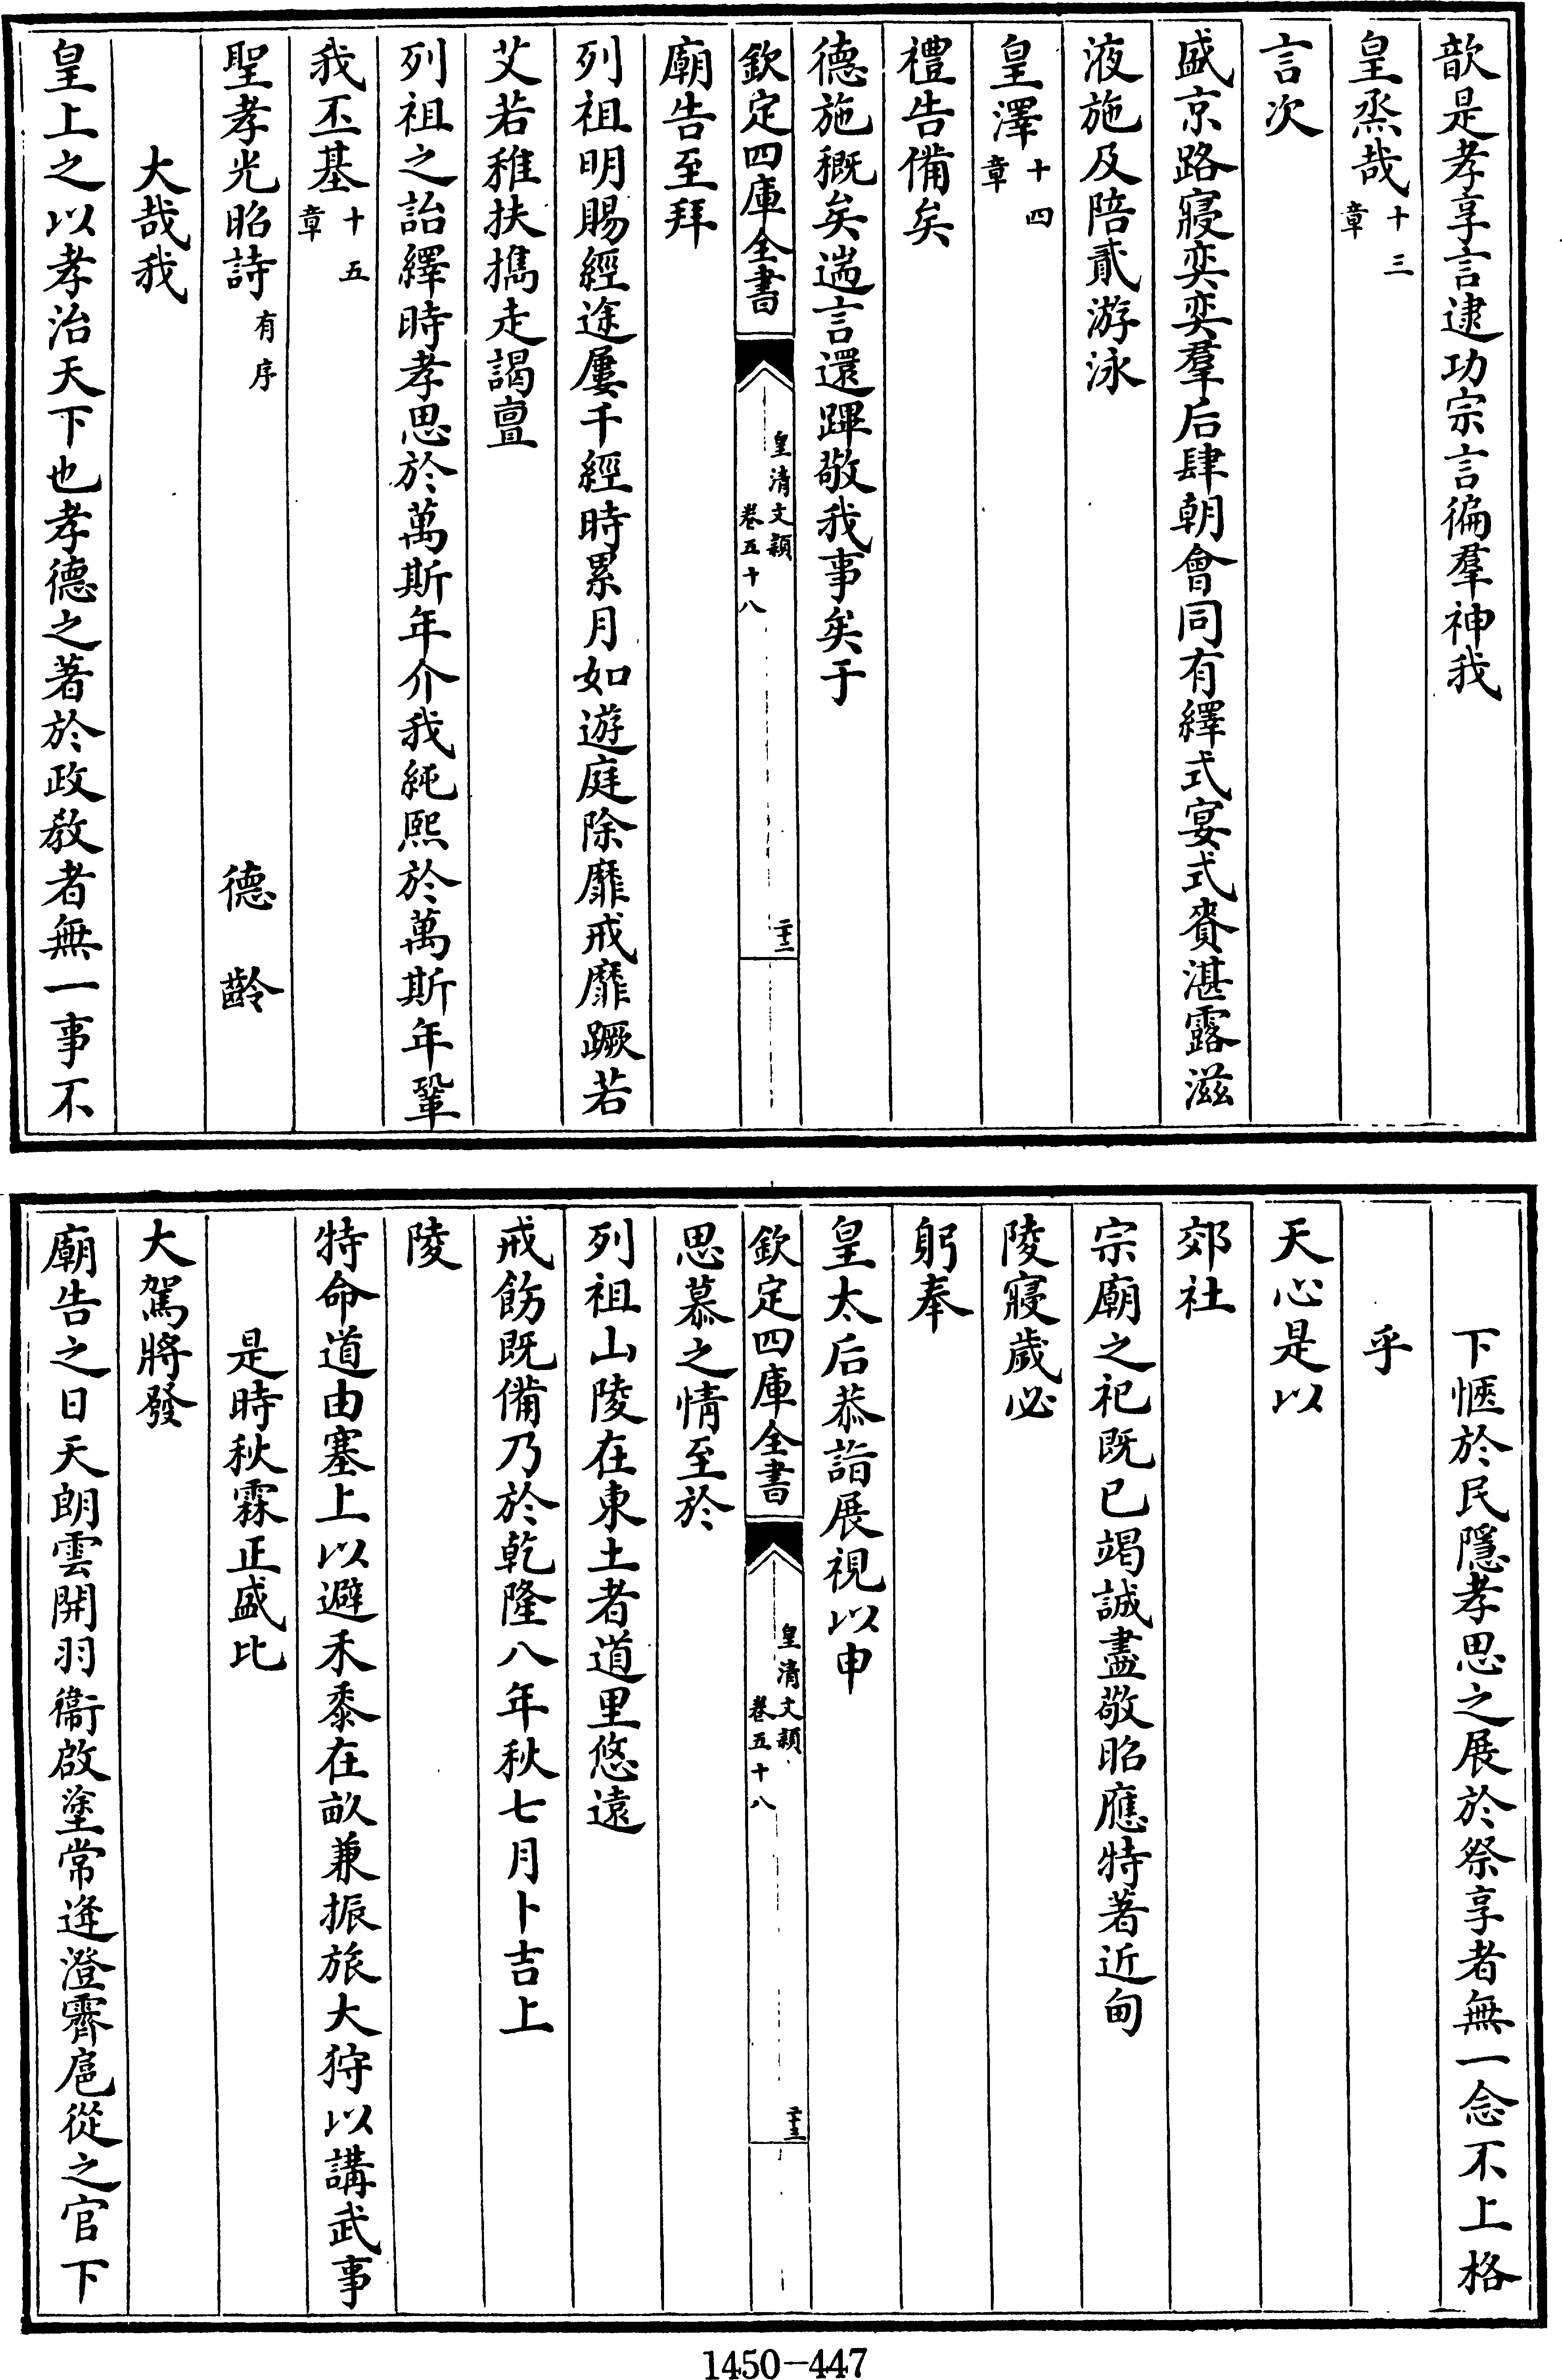 歆是孝享言逮功宗言徧羣神我
皇烝哉十三章
言次
盛京路寢奕奕羣后肆朝會同有繹式宴式賚湛露滋
液施及陪貳游泳
皇澤十四章
禮告備矣
德施穊矣遄言還蹕敬我事矣于
欽定四庫全書
皇清文穎
卷五十八
二十二
廟告至拜
列祖明賜經途屢千經時累月如遊庭除靡戒靡蹶若
艾若稚扶攜走謁亶
列祖之詒繹時孝思於萬斯年介我純熙於萬斯年鞏
我丕基十五章
聖孝光昭詩有序
德齡
大哉我
皇上之以孝治天下也孝德之著於政教者無一事不
下愜於民隱孝思之展於祭享者無一念不上格
乎
天心是以
郊社
宗廟之祀既已竭誠盡敬昭應特著近甸
陵寢歲必
躬奉
皇太后恭詣展視以申
欽定四庫全書
皇清文穎
卷五十八
二十三
思慕之情至於
列祖山陵在東土者道里悠遠
戒飭既備乃於乾隆八年秋七月卜吉上
陵
特命道由塞上以避禾黍在畝兼振旅大狩以講武事
是時秋霖正盛比
大駕將發
廟告之日天朗雲開羽衞啟塗常逢澄霽扈從之官下
1450-447